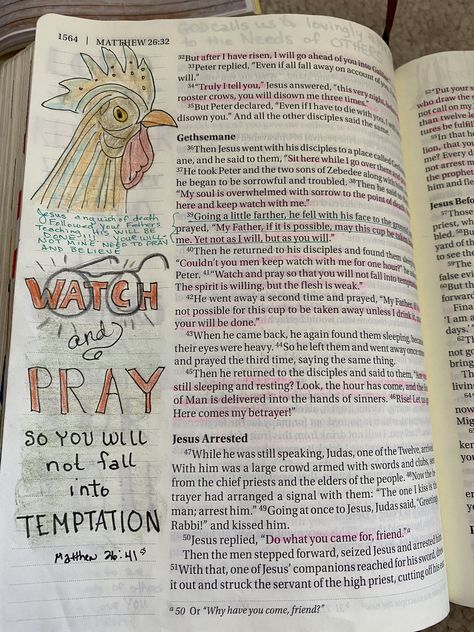 GOD calls us to lovingly
to the Needs of OTHERS
1564 | MATTHEW 26:32
Jesus anguish of death
Followed Your Fathers
Teaching
NOT MINE NEED TO PRAY
AND BELIEVE
WATCH
and
PRAY
SO YOU WILL
not fall
into
TEMPTATION
Matthew 26:41
32But after I have risen, I will go ahead of you into
33Peter replied, "Even if all fall away on account of you,
will."
34"Truly I tell you," Jesus answered, "this very night,
rooster crows, you will disown me three times."
35But Peter declared, "Even if I have to die with you, I
disown you." And all the other disciples said the same.
Gethsemane
36Then Jesus went with his disciples to a place called
ane, and he said to them, "Sit here while I go over there and
37He took Peter and the two sons of Zebedee along with
he began to be sorrowful and troubled. 38Then he said
"My soul is overwhelmed with sorrow to the point of
here and keep watch with me."
39Going a little farther, he fell with his face to the
prayed, "My Father, if it is possible, may this cup be
me. Yet not as I will, but as you will."
40Then he returned to his disciples and found them
"Couldn't you men keep watch with me for one hour?" he
Peter. 41"Watch and pray so that you will not fall into
The spirit is willing, but the flesh is weak."
42He went away a second time and prayed, "My Father,
not possible for this cup to be taken away unless I drink it,
your will be done."
43When he came back, he again found them sleeping,
their eyes were heavy. 44So he left them and went away once
and prayed the third time, saying the same thing.
45Then he returned to the disciples and said to them,
still sleeping and resting? Look, the hour has come, and the
of Man is delivered into the hands of sinners. 46Rise! Let us
Here comes my betrayer!"
Jesus Arrested
47While he was still speaking, Judas, one of the Twelve, arrived.
With him was a large crowd armed with swords and clubs,
from the chief priests and the elders of the people. 48Now the
trayer had arranged a signal with them: "The one I kiss is
man; arrest him." 49Going at once to Jesus, Judas said, "Greetings,
Rabbi!" and kissed him.
50Jesus replied, "Do what you came for, friend."a
Then the men stepped forward, seized Jesus and arrested him.
51With that, one of Jesus' companions reached for his sword,
it out and struck the servant of the high priest, cutting off his
a 50 Or "Why have you come, friend?"
52"Put your
who draw the
not call on
than twelve
tures be fulfilled
In that
lion, that
me? Every
did not
taken
the prophets
him and
Jesus Before
57Those
priest,
bled. 58But
yard of
to see the
59The